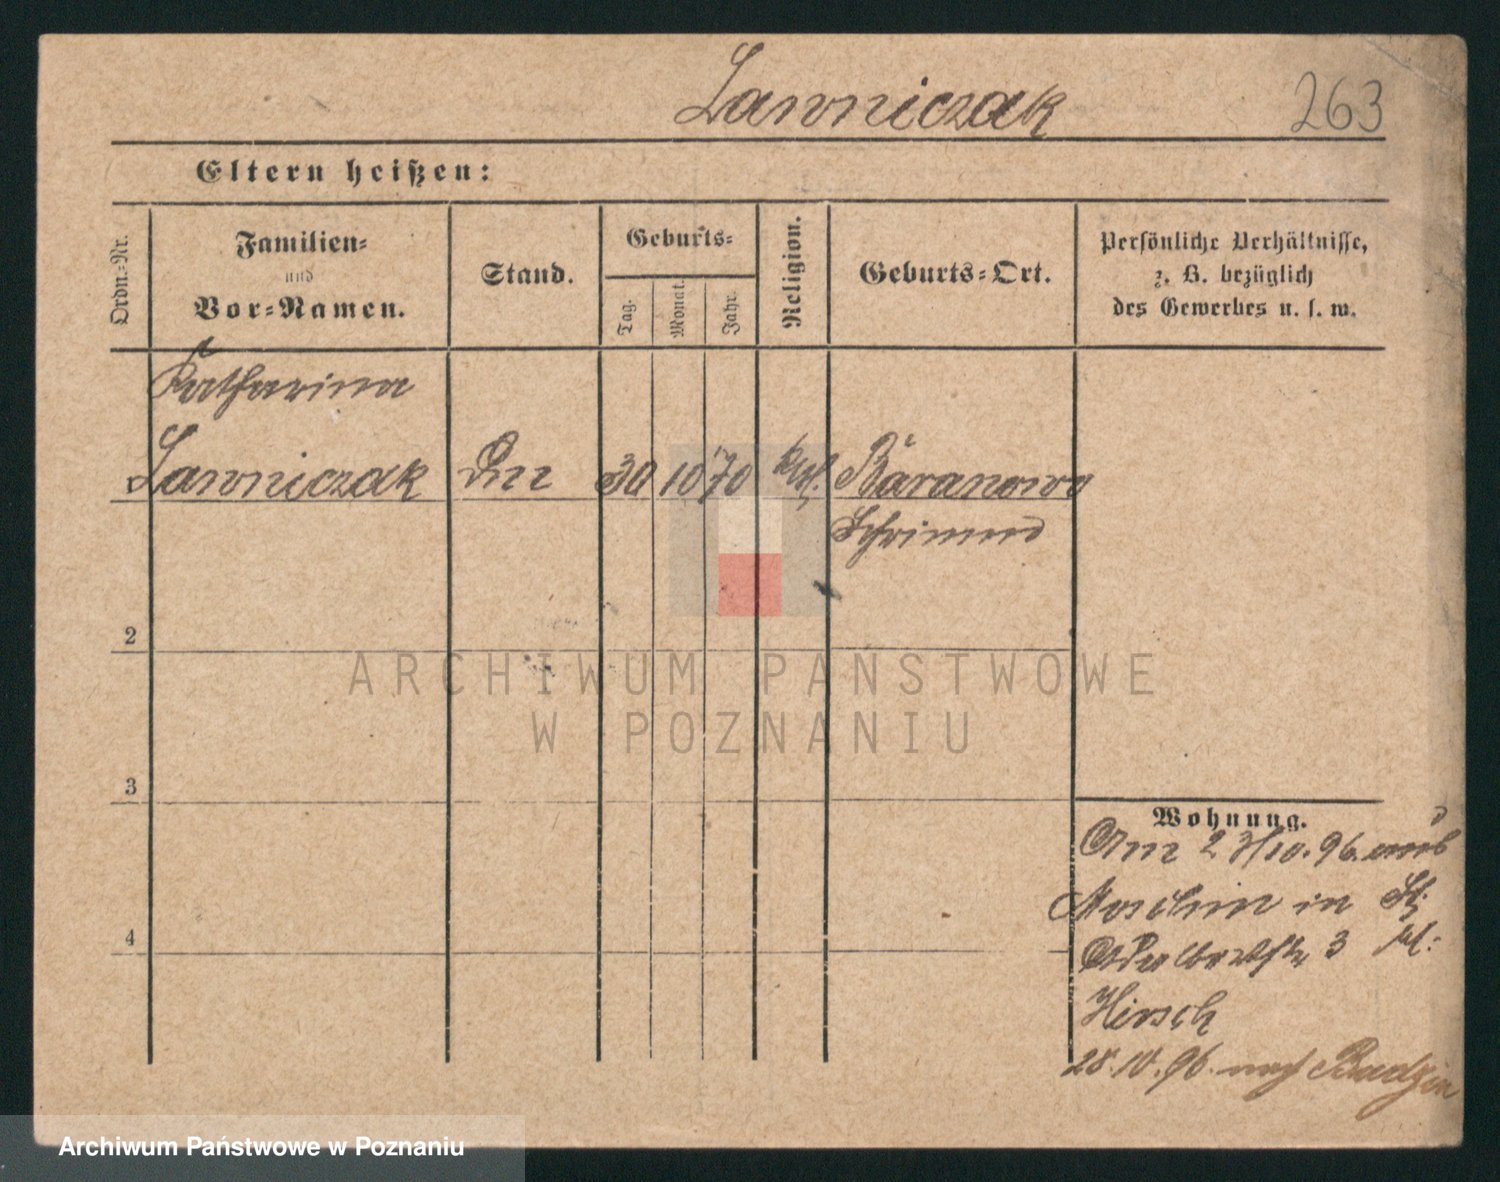 Lawniczak 263
Eltern heißen:
Ordn.-Nr.
Familien-
und
Vor-Namen.
Stand.
Geburts-
Tag.
Monat.
Jahr.
Religion.
Geburts-Ort.
Persönliche Verhältnisse,
z. B. bezüglich
des Gewerbes u. s. w.
Katharina
Lawniczak 30 10 70 kth. Baranowo
Schrimm
2
3
4
Wohnung.
Am 23/10. 96. aus
Moschin in St.
3
Hirsch
28.10.96. nach
ARCHIWUM PAŃSTWOWE
W POZNANIU
Archiwum Państwowe w Poznaniu